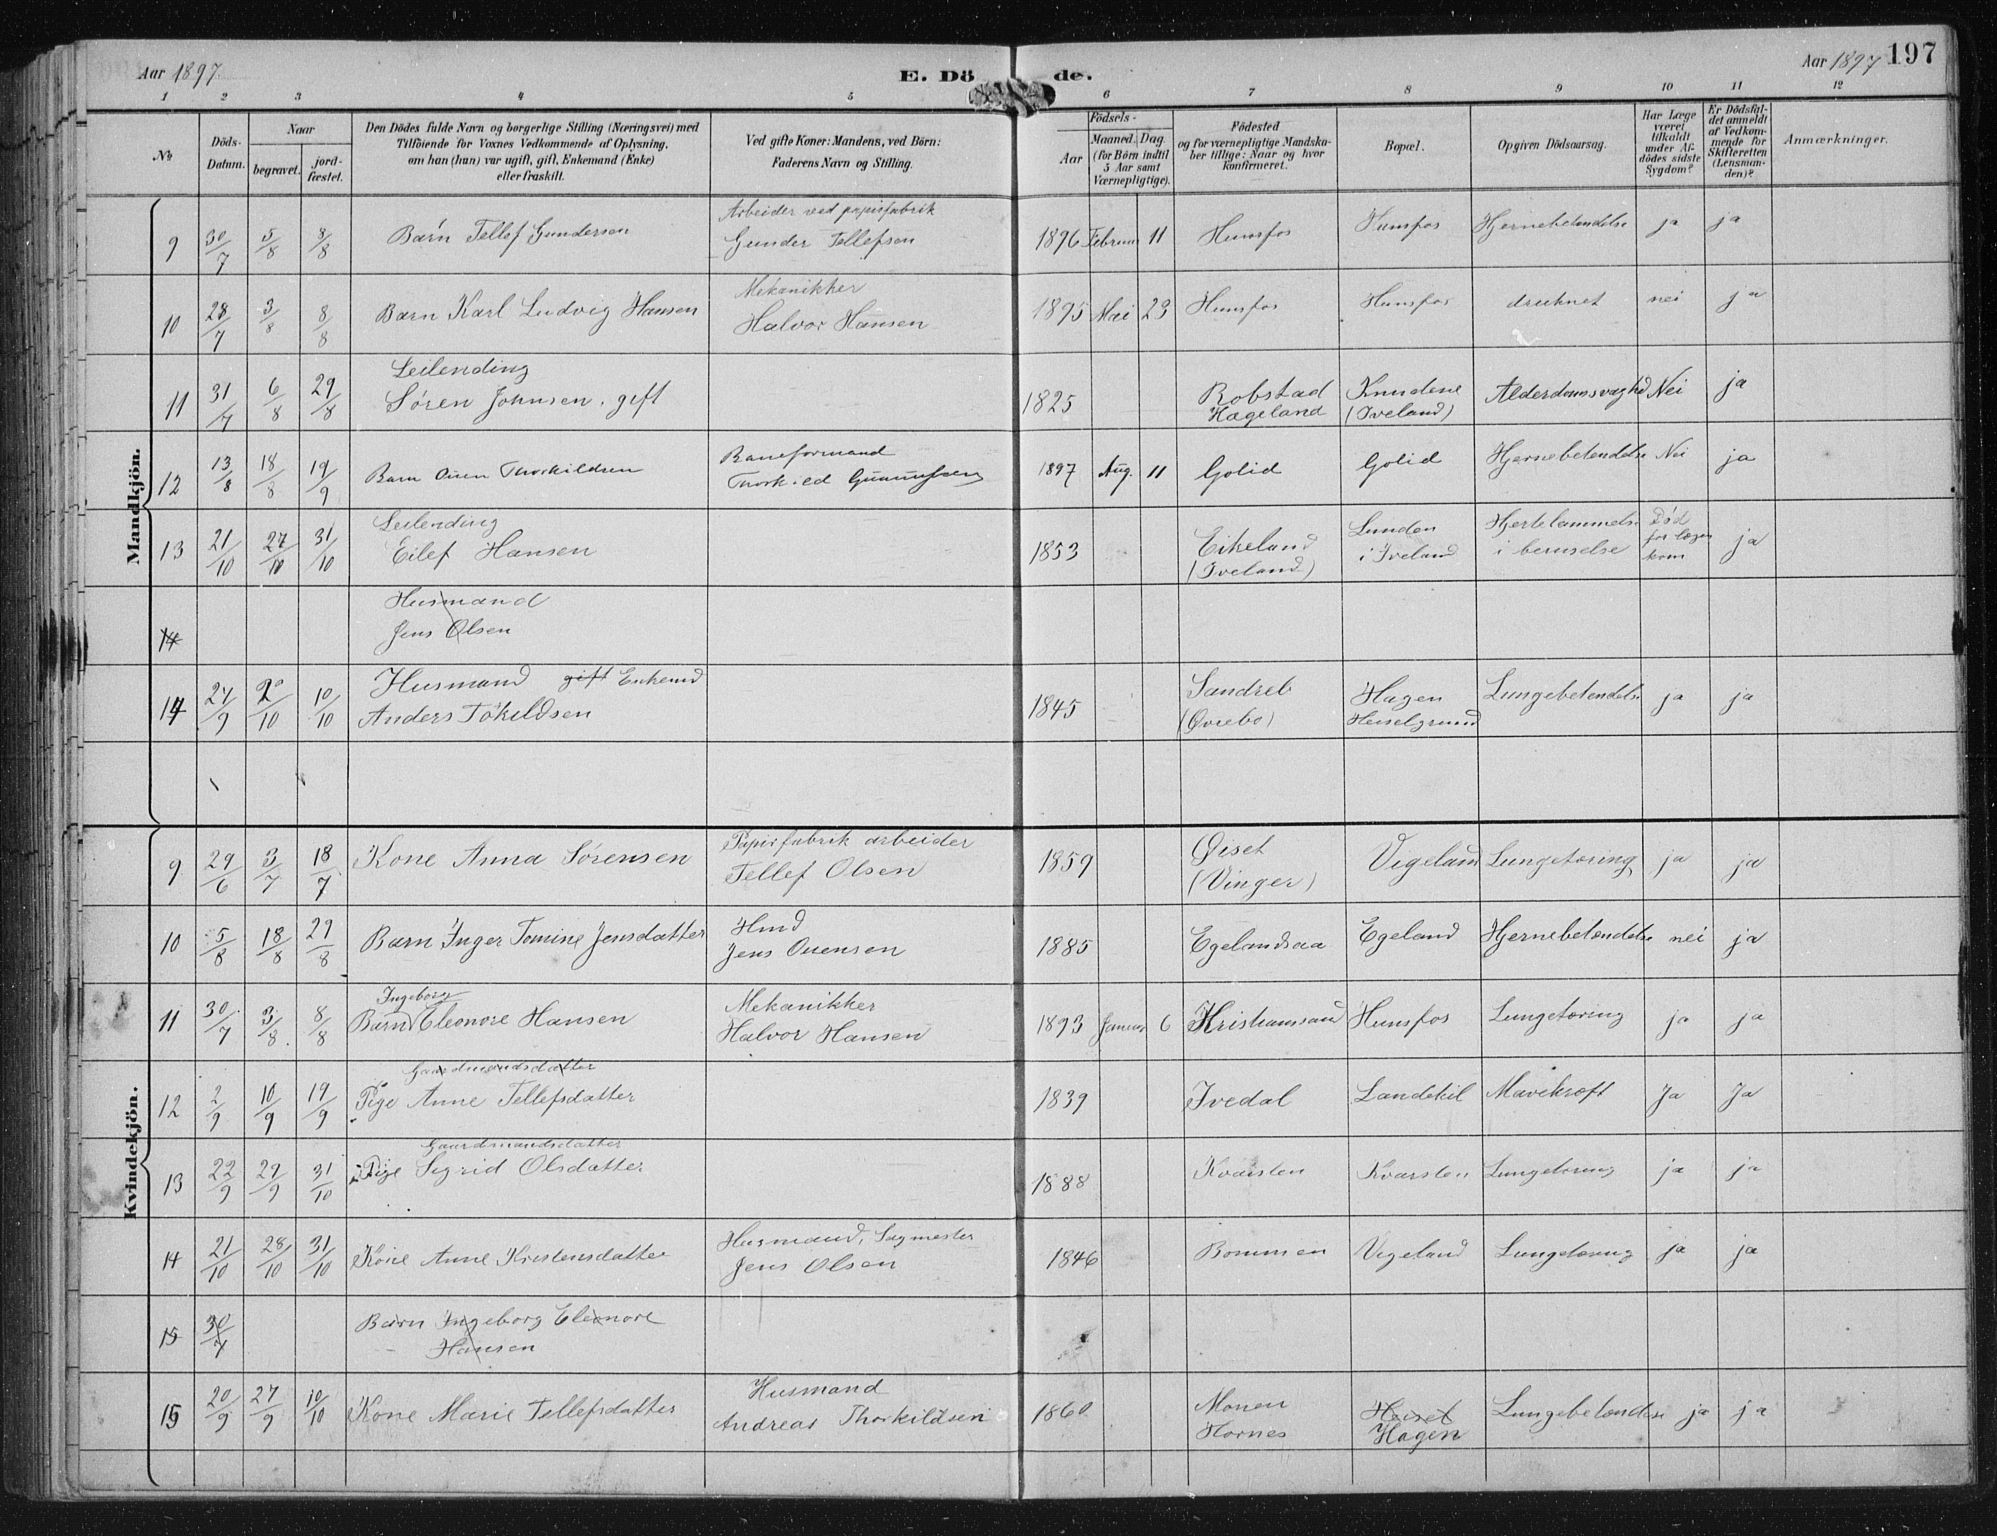 Aar 1897.
E. Dö de.
Aar 1897 197
1 2 3 4 5 6 7 8 9 10 11 12
No
Döds-Datum.
Naar
begravet.
jord-fæstet.
Den Dödes fulde Navn og borgerlige Stilling (Næringsvei) med
Tilföiende for Voxnes Vedkommende af Oplysning,
om han (hun) var ugift, gift, Enkemand (Enke)
eller fraskilt.
Ved gifte Koner: Mandens, ved Börn:
Faderens Navn og Stilling.
Födsels-
Aar
Maaned. Dag.
(for Börn indtil
5 Aar samt
Værnepligtige).
Födested
og for værnepligtige Mandska-
ber tillige: Naar og hvor
konfirmeret.
Bopæl.
Opgiven Dödsaarsag.
Har Læge
været
tilkaldt
under Af-
dödes sidste
Sygdom?
Er Dödsfal-
det anmeldt
af Vedkom-
mende for
Skifteretten
(Lensman-
den)?
Anmærkninger.
Mandkjön.
Arbeider ved papirfabrik
9 30/7 5/8 8/8 Barn Tellef Gundersen Gunder Tellefsen 1896 Februar 11 Hunsfos Hunsfos Hjernebetendelse ja ja
Mekanikker
10 28/7 3/8 8/8 Barn Karl Ludvig Hansen Halvor Hansen 1895 Mai 23 Hunsfos Hunsfos druknet nei ja
Leilending
11 31/7 6/8 29/8 Sören Johnsen. gift 1825 Robstad Knudene Alderdomsvaghed Nei ja
Hægeland (Iveland)
Baneformand
12 13/8 18/8 19/9 Barn Ouen Thorkildsen 1897 Aug. 11 Golid Golid Hjernebetendelse Nei ja
Leilending Lunden Hjertelammelse Død
13 21/10 27/10 31/10 Eilef Hansen 1853 Eikeland i Iveland i beruselse før læge ja
(Iveland) kom
Husmand
14 Jens Olsen
Husmand gift Enkemd
14 27/9 2/10 10/10 Anders Tökildsen 1845 Sandreb Hagen Lungebetendelse ja ja
(Øvrebø) Heiselgrund
Kvindekjön.
Papirfabrik arbeider
9 29/6 3/7 18/7 Kone Anna Sørensen Tellef Olsen 1859 Øiset Vigeland Lungetæring ja ja
(Vinger)
Hmd
10 5/8 18/8 29/8 Barn Inger Tomine Jensdatter Jens Ouensen 1885 Egelandsaa Egeland Hjernebetændelse nei ja
Ingeborg Mekanikker
11 30/7 3/8 8/8 Barn Eleonore Hansen Halvor Hansen 1893 Januar 6 Kristianssand Hunsfos Lungetæring ja ja
Gaardmandsdatter
12 2/9 10/9 19/9 Pige Anne Tellefsdatter 1839 Ivedal Landekil Mavekræft Ja Ja
Gaardmandsdatter
13 22/9 29/9 31/10 Pige Sigrid Olsdatter 1888 Kvarsten Kvarsten Lungetæring ja ja
Husmand, Sagmester
14 21/10 28/10 31/10 Kone Anne Kristensdatter Jens Olsen 1846 Bommen Vigeland Lungetæring ja ja
15 30/7 Barn Ingeborg Eleonore
Hansen
Husmand
15 20/9 27/9 10/10 Kone Marie Tellefsdatter Andreas Thorkildsen 1860 Monen Heiset Lungebetændelse ja ja
Hornes Hagen